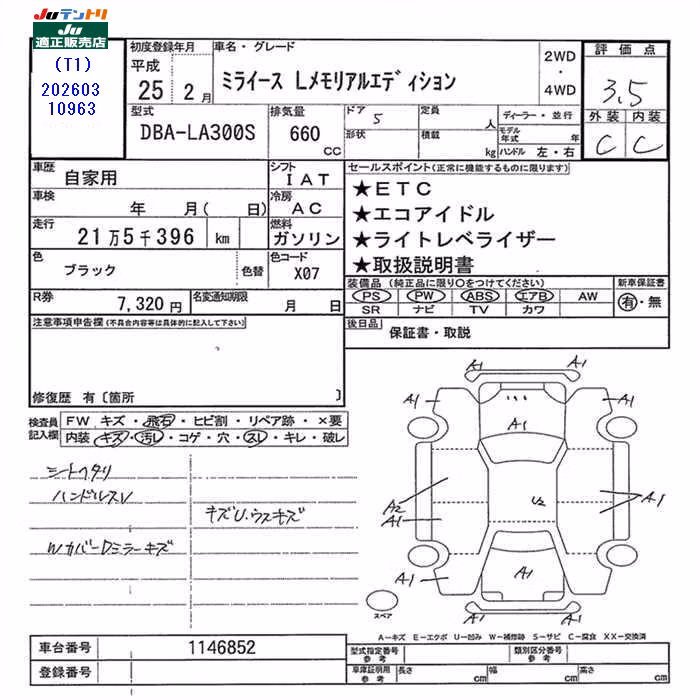 Juテントリ
Ju
適正販売店
(T1)
202603
10963
初度登録年月
平成
25 2 月
車名・グレード
ミライース Lメモリアルエディション
2WD
・
4WD
評価点
3.5
外装 内装
C C
型式
DBA-LA300S
排気量
660
CC
ドア 5
形状
定員
人
積載
kg
ディーラー・並行
モデル年式 年
ハンドル 左・右
車歴
自家用
シフト
I AT
車検
年 月( 日)
冷房
AC
走行
21万5千396 km
燃料
ガソリン
色
ブラック
色替
色コード
X07
R券
7,320円
名変通知期限
月 日
セールスポイント(正常に機能するものに限ります)
★ETC
★エコアイドル
★ライトレベライザー
★取扱説明書
装備品 (純正品に限り○をつけてください)
PS PW ABS エアB AW
SR ナビ TV カワ
新車保証書
有・無
後日品
保証書・取説
注意事項申告欄(不具合内容等は具体的に記入して下さい)
修復歴 有〔箇所 〕
検査員
記入欄
FW キズ・飛石・ヒビ割・リペア跡・×要
内装 キズ・汚レ・コゲ・穴・スレ・キレ・破レ
シートヘタリ
ハンドルスレ
キズU.ウスキズ
WカバーDミラーキズ
A1
A1
A1
A1
A1
A2
A1
U2
A1
A1
A1
A1
A1
A1
スペア
A−キズ E−エクボ U−凹み W−補修跡 S−サビ C−腐食 XX−交換済
車台番号
1146852
登録番号
型式指定番号
参考
類別区分番号
参考
車庫証明用
参考
長さ cm
幅 cm
高さ cm